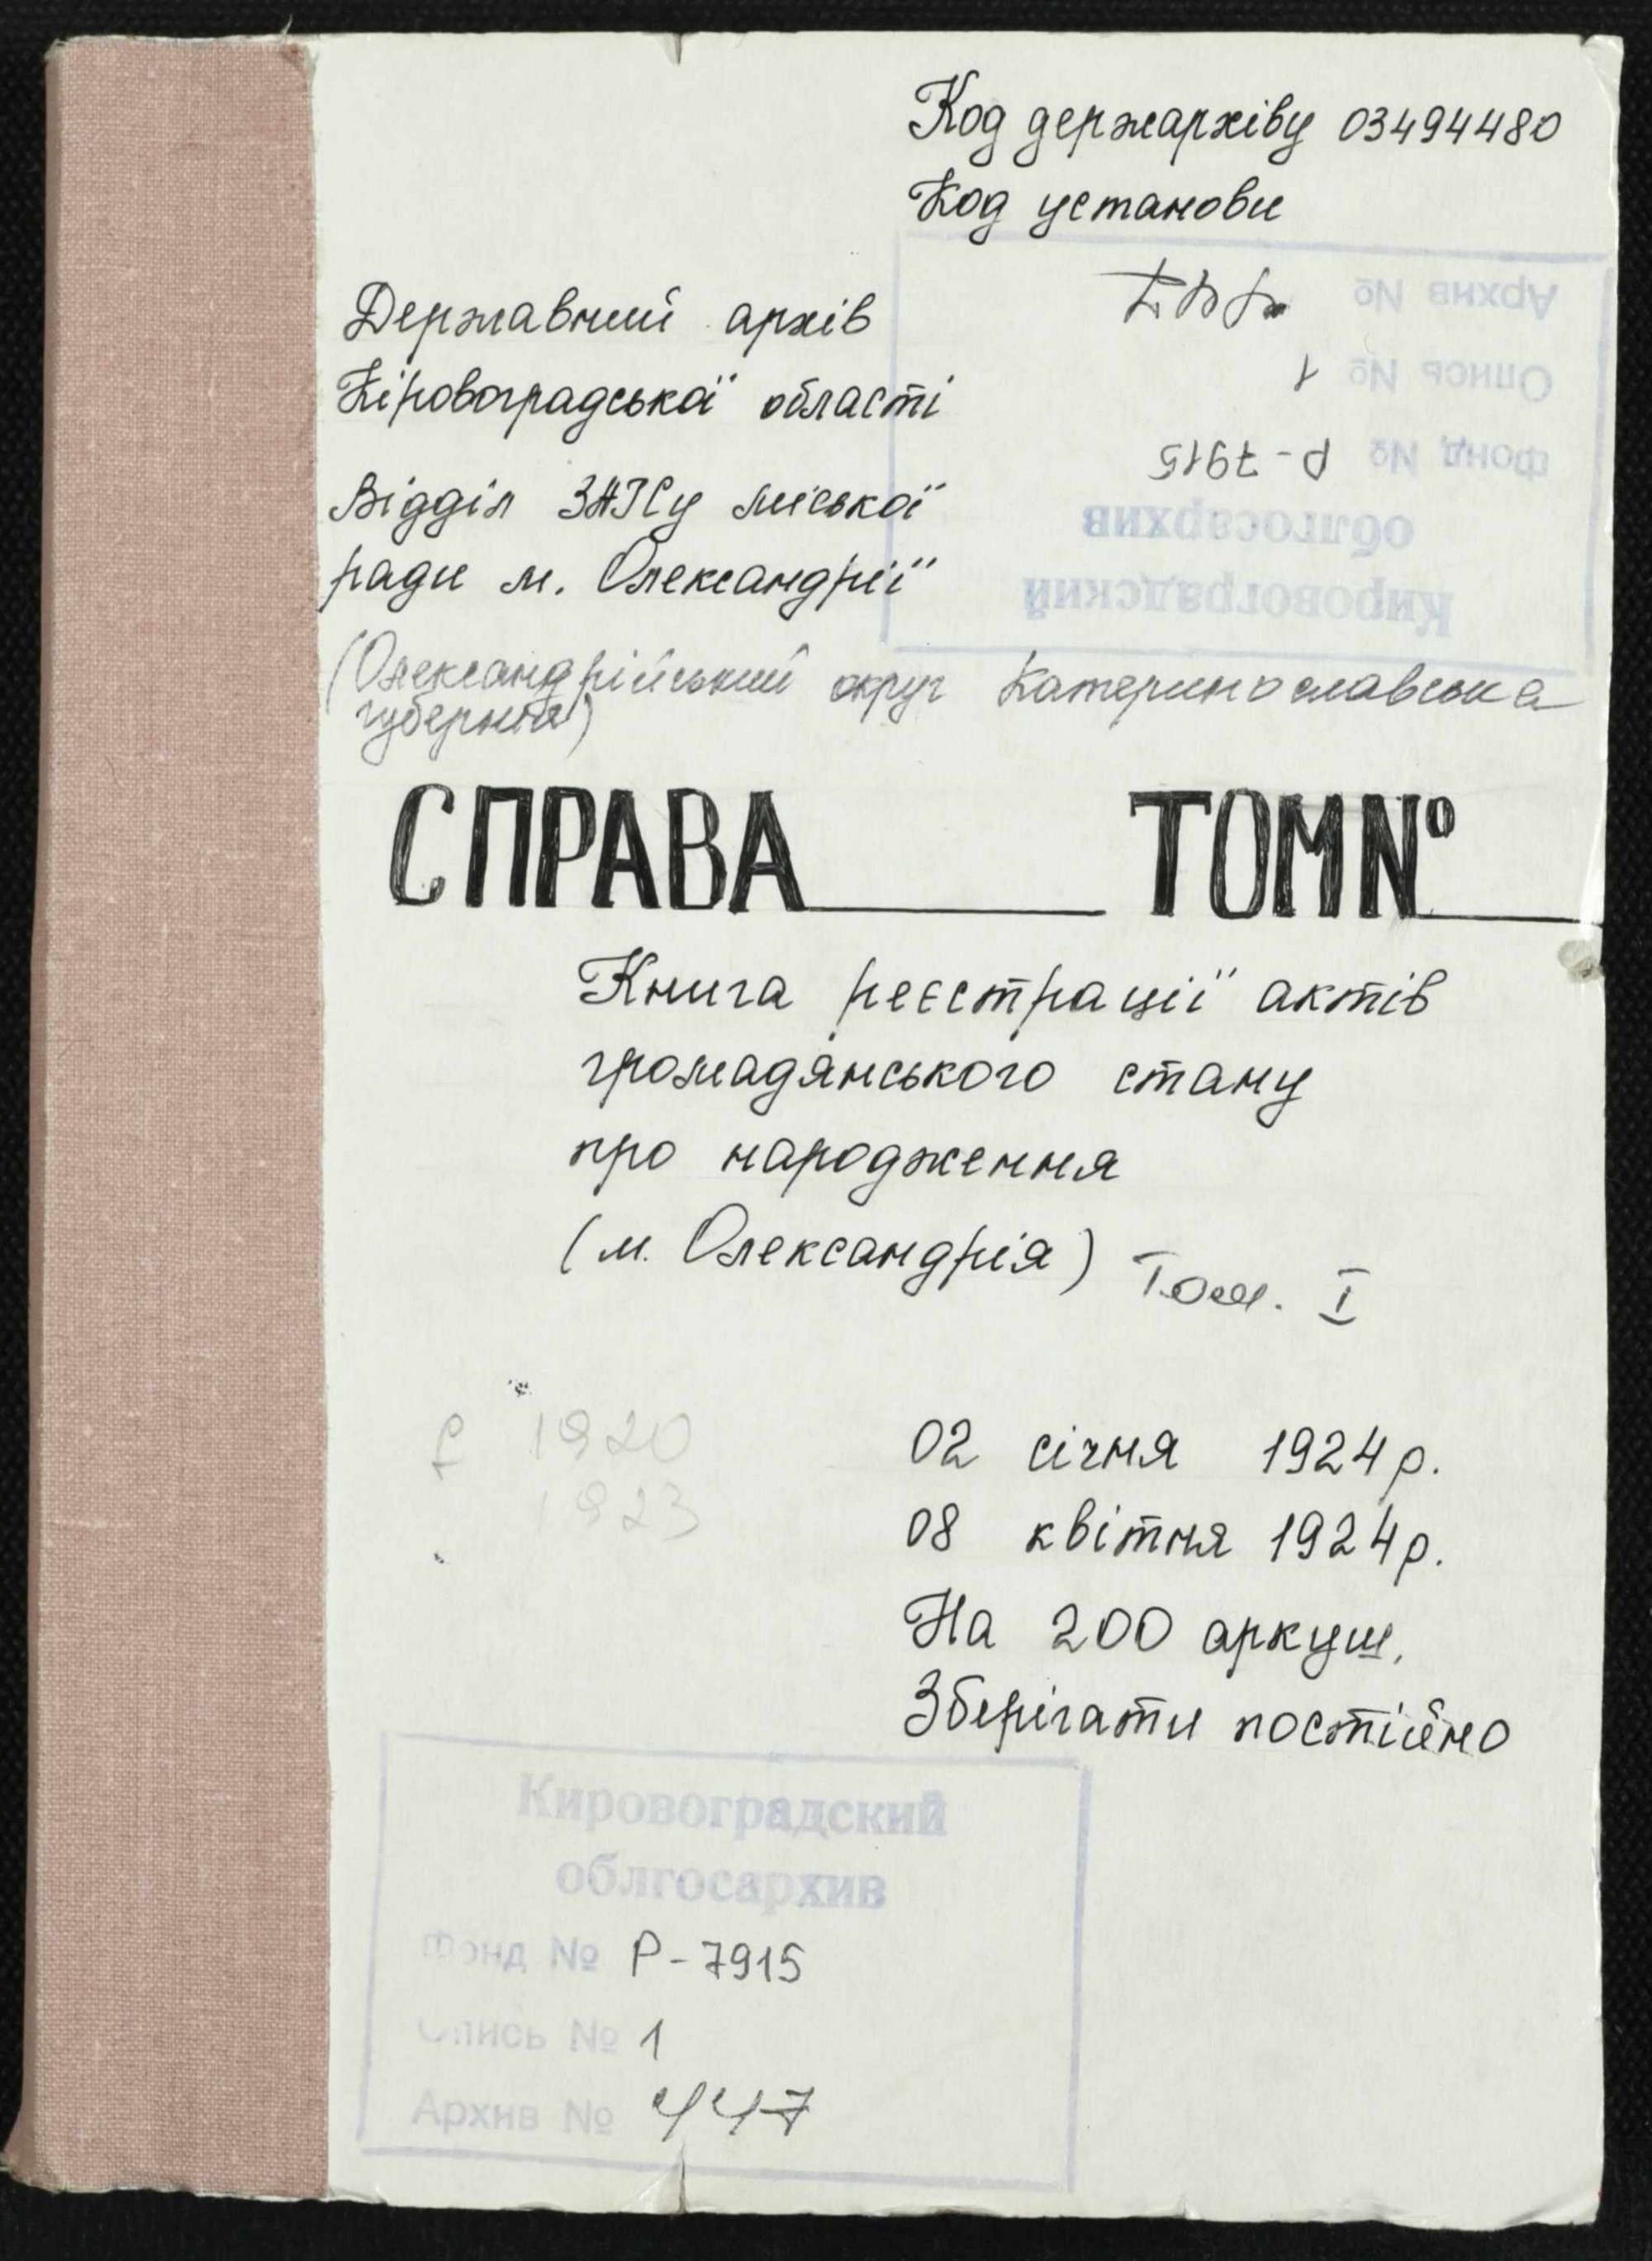 Код держархіву 03494480
Код установи
Архив № 447
Опись № 1
Фонд № Р-7915
облгосархив
Кировоградский
Державний архів
Кіровоградської області
Відділ ЗАГСу міської
ради м. Олександрії
(Олександрійський округ Катеринославська
губернія)
СПРАВА ТОМ №
Книга реєстрації актів
громадянського стану
про народження
(м. Олександрія) Том. I
1920
1923
02 січня 1924 р.
08 квітня 1924 р.
На 200 аркуш.
Зберігати постійно
Кировоградский
облгосархив
Фонд № Р-7915
Опись № 1
Архив № 447